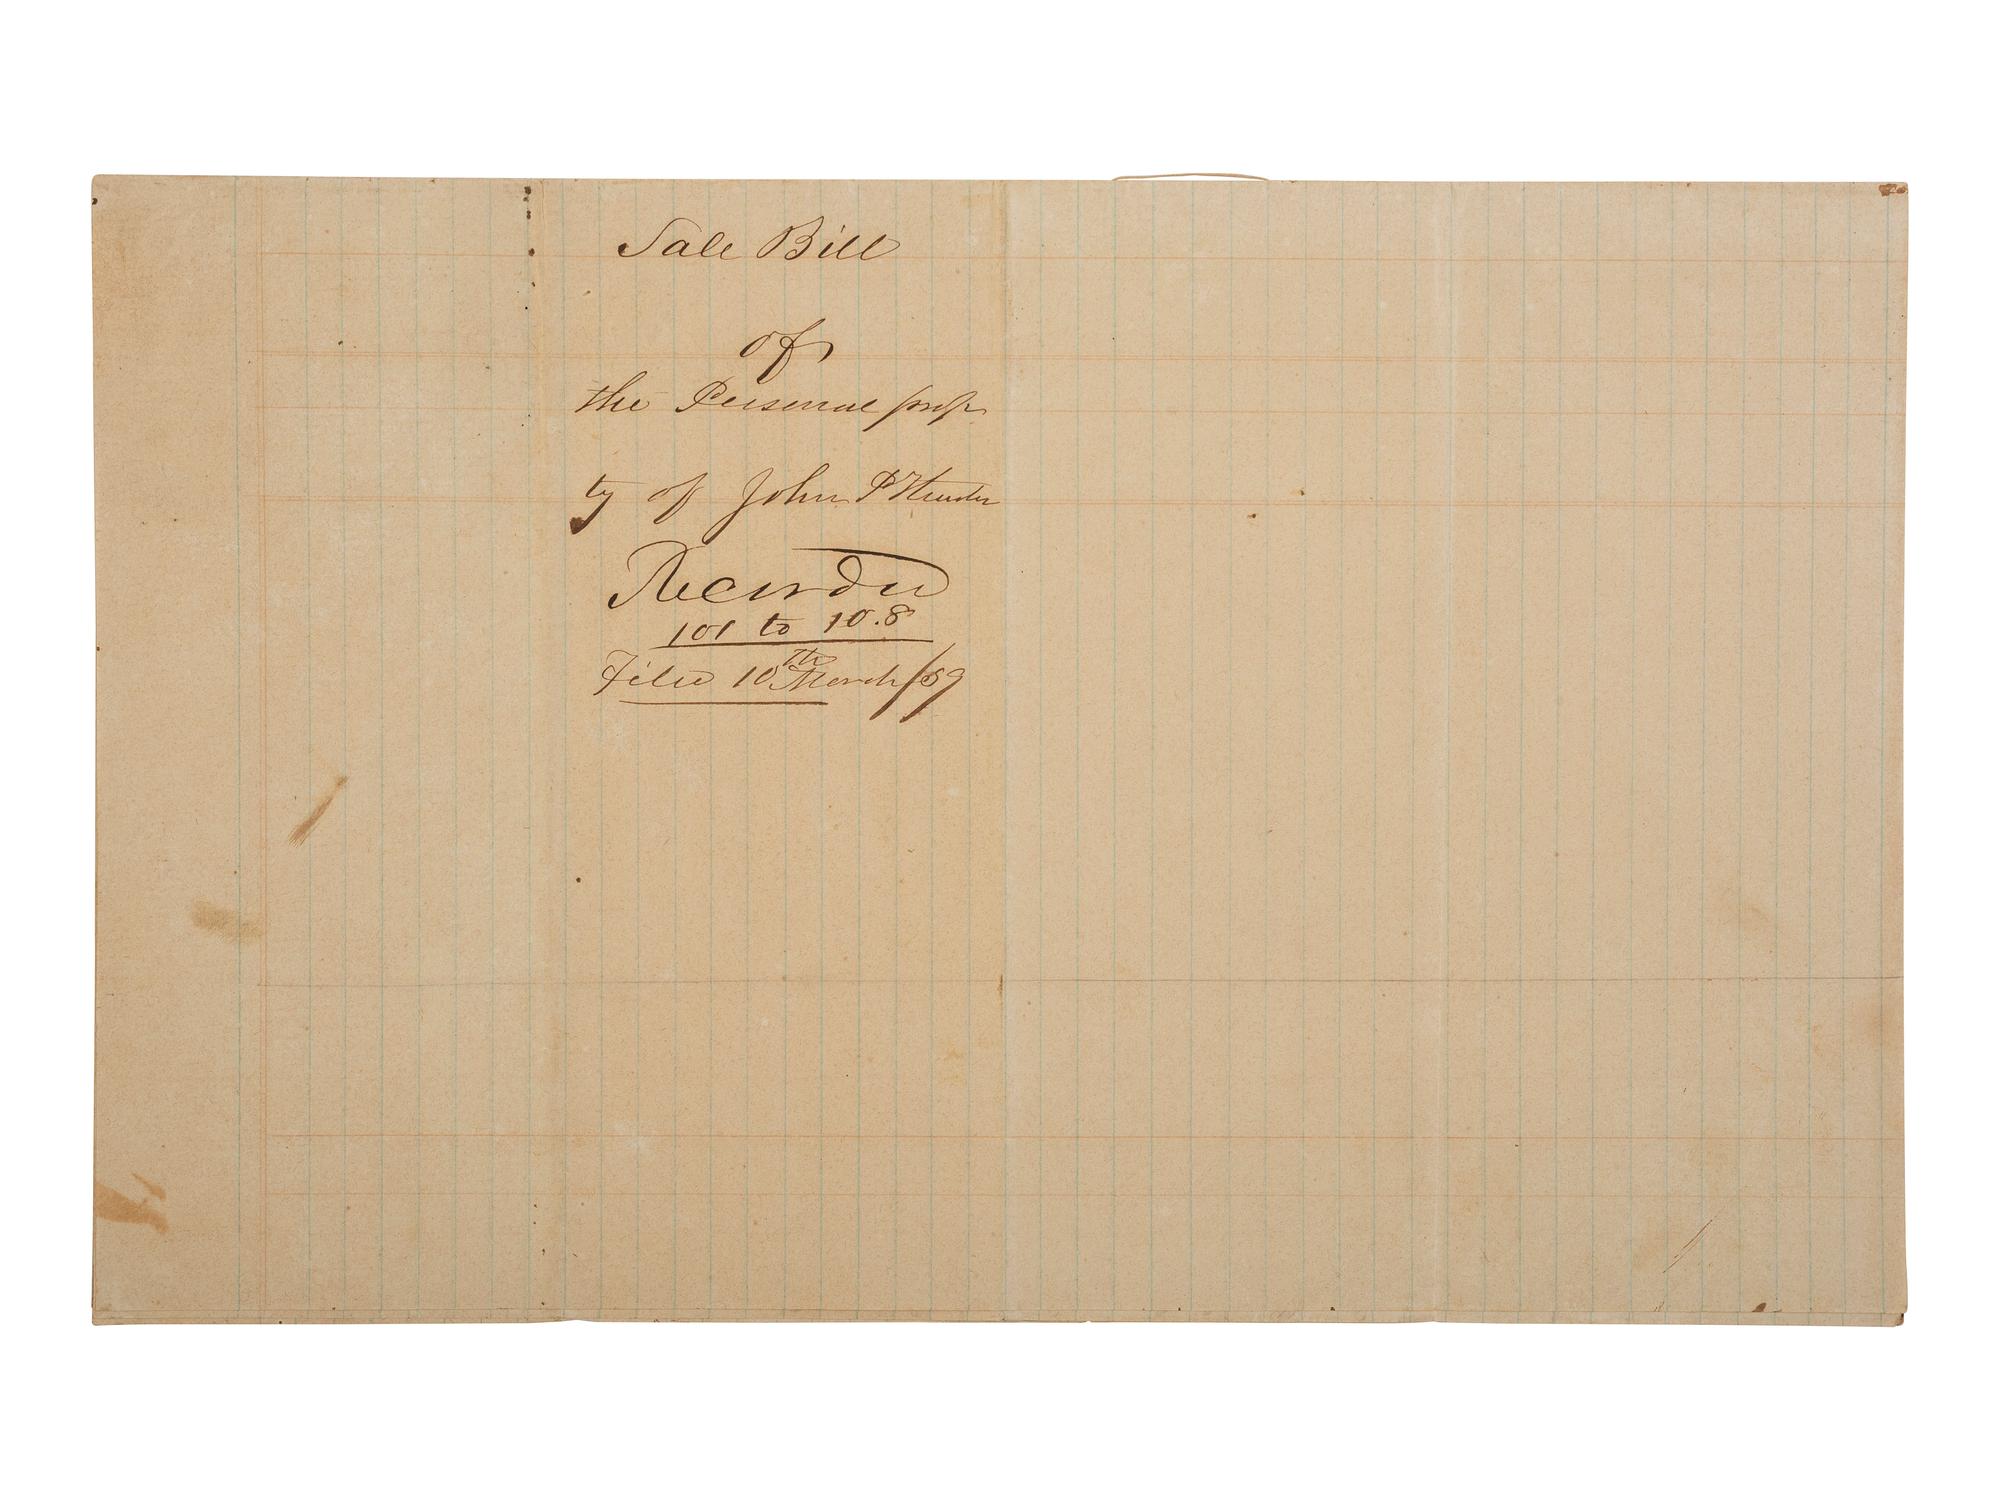 Sale Bill
of
the Personal prop
ty of John P Hunter
Recorded
101 to 10.8
Filed 10th March /59